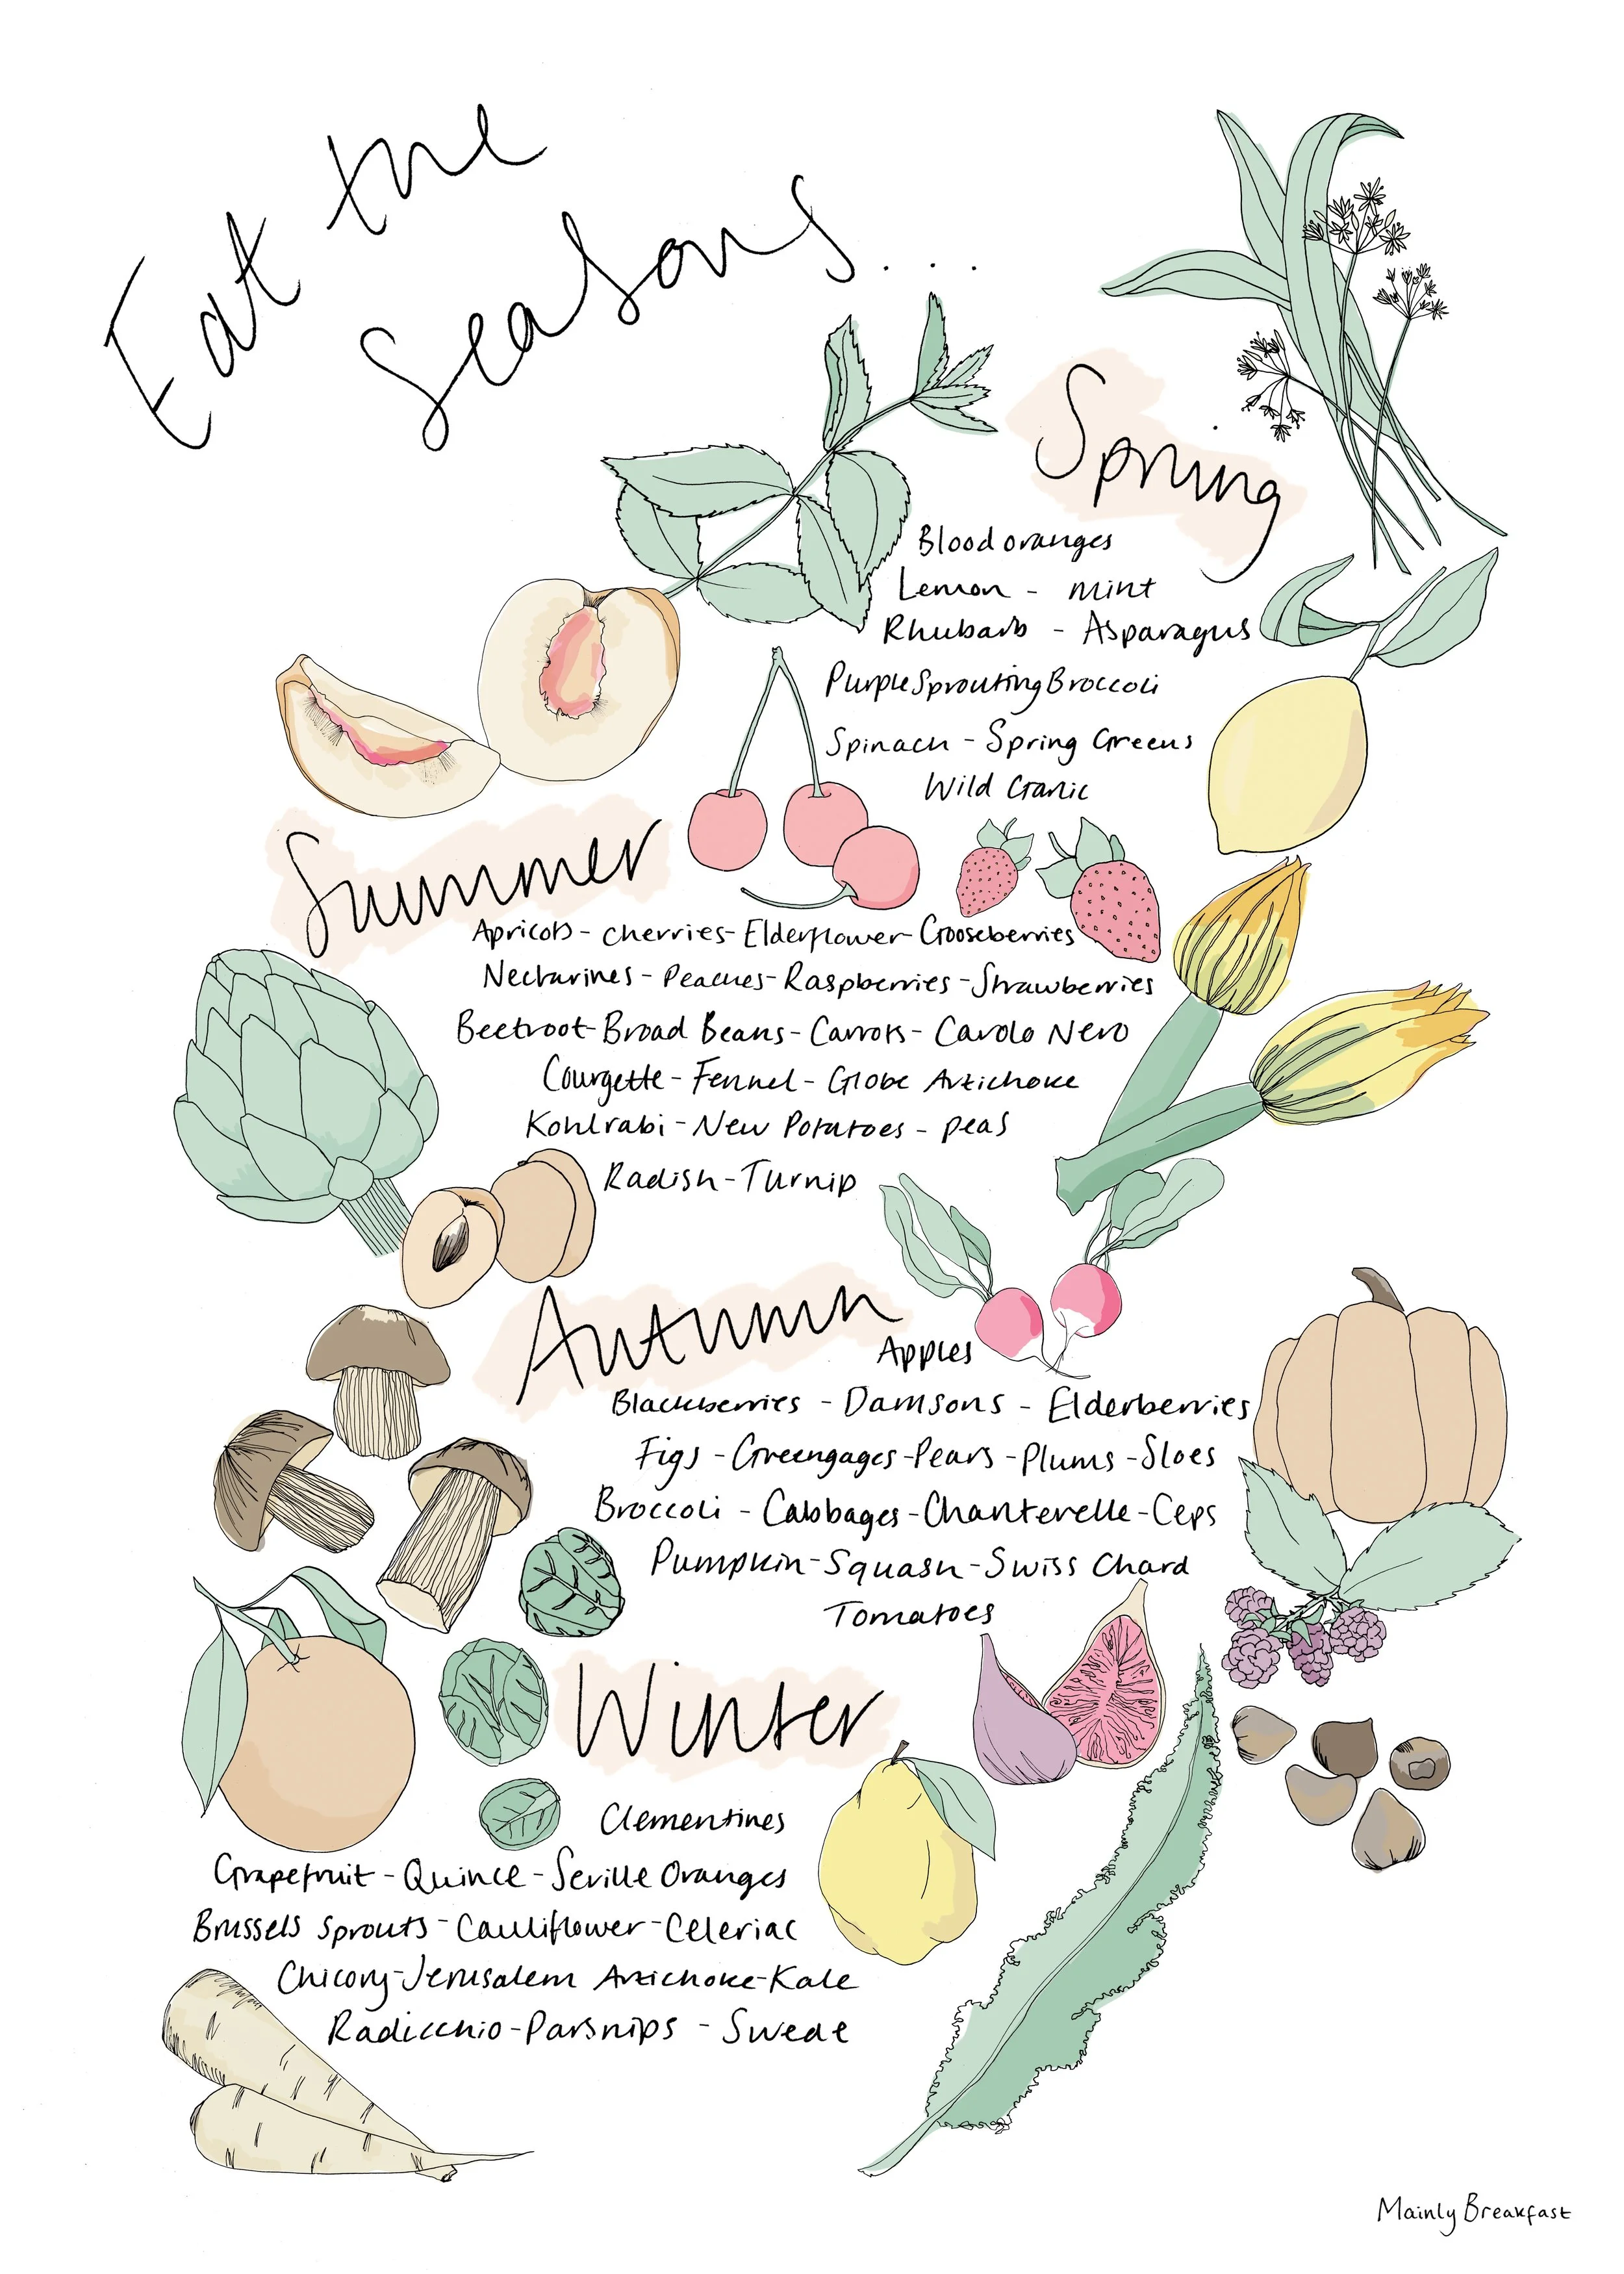 Eat the
Seasons...
Spring
Blood oranges
Lemon - Mint
Rhubarb - Asparagus
Purple Sprouting Broccoli
Spinach - Spring Greens
Wild Garlic
Summer
Apricots - Cherries - Elderflower - Gooseberries
Nectarines - Peaches - Raspberries - Strawberries
Beetroot - Broad Beans - Carrots - Cavolo Nero
Courgette - Fennel - Globe Artichoke
Kohlrabi - New Potatoes - peas
Radish - Turnip
Autumn
Apples
Blackberries - Damsons - Elderberries
Figs - Greengages - Pears - Plums - Sloes
Broccoli - Cabbages - Chanterelle - Ceps
Pumpkin - Squash - Swiss Chard
Tomatoes
Winter
Clementines
Grapefruit - Quince - Seville Oranges
Brussels Sprouts - Cauliflower - Celeriac
Chicory - Jerusalem Artichoke - Kale
Radicchio - Parsnips - Swede
Mainly Breakfast